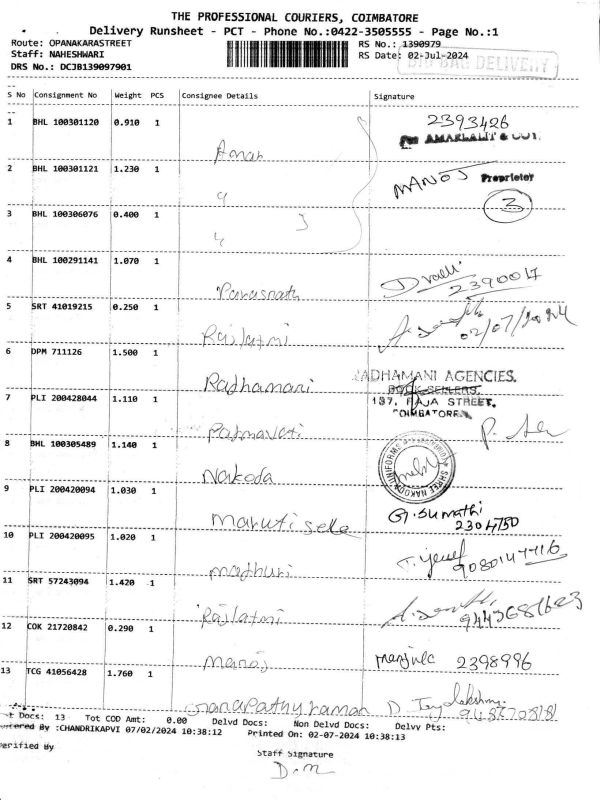 THE PROFESSIONAL COURIERS, COIMBATORE
Delivery Runsheet - PCT - Phone No.:0422-3505555 - Page No.:1
Route: OPANAKARASTREET RS No.: 1390979
Staff: NAHESHWARI RS Date: 02-Jul-2024
DRS No.: DCJB139097901 BIG BAG DELIVERY
S No Consignment No Weight PCS Consignee Details Signature
1 BHL 100301120 0.910 1 2393426
AMARLALIT & CO.
Amar
2 BHL 100301121 1.230 1 MANOJ Proprietor
3
3 BHL 100306076 0.400 1
4 BHL 100291141 1.070 1
Parasnath 2390017
5 SRT 41019215 0.250 1
Rajlaxmi 02/07/2024
6 DPM 711126 1.500 1
Radhamani RADHAMANI AGENCIES.
BOOK SELLERS.
7 PLI 200428044 1.110 1 187, RAJA STREET,
COIMBATORE
Padmavati
8 BHL 100305489 1.140 1
Nakoda
9 PLI 200420094 1.030 1
Maruti G. Sumathi
2304750
10 PLI 200420095 1.020 1
Madhuri
11 SRT 57243094 1.420 1
Rajlaxmi
12 COK 21720842 0.290 1
Manoj Manjula 2398996
13 TCG 41056428 1.760 1
Ganapathyraman
Docs: 13 Tot COD Amt: 0.00 Delvd Docs: Non Delvd Docs: Delvy Pts:
Entered By :CHANDRIKAPVI 07/02/2024 10:38:12 Printed On: 02-07-2024 10:38:13
Verified By
Staff Signature